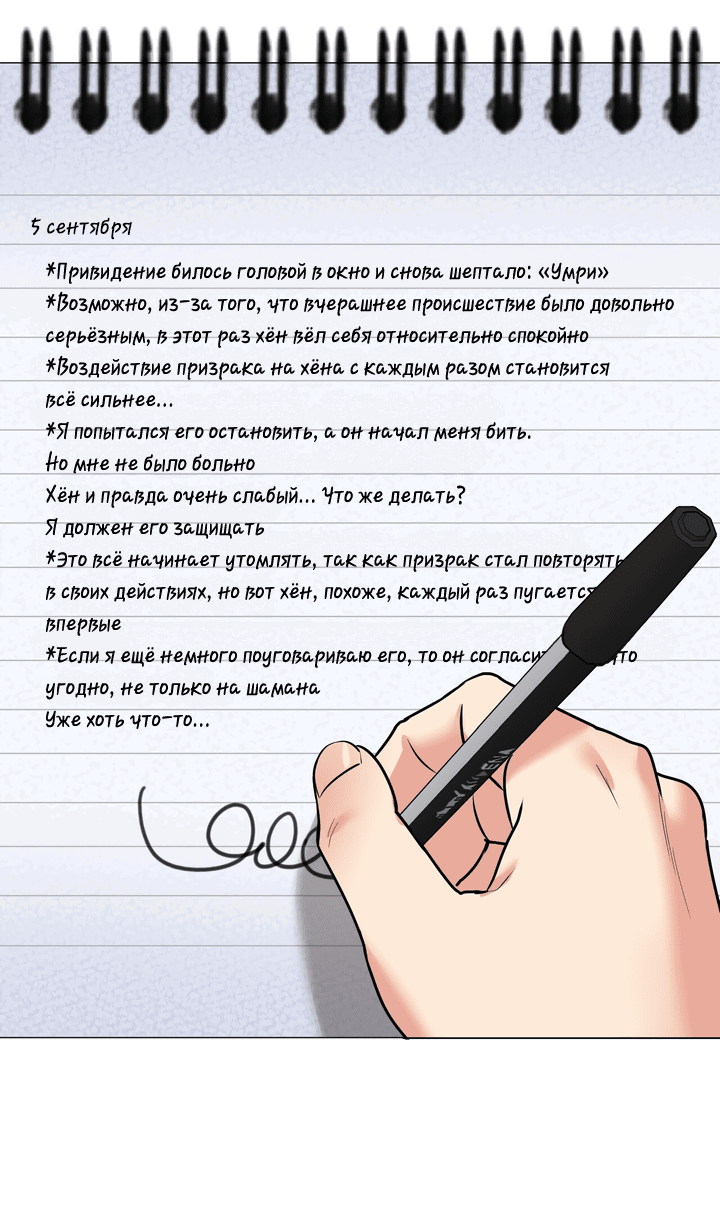 5 сентября
*Привидение билось головой в окно и снова шептало: «Умри»
*Возможно, из-за того, что вчерашнее происшествие было довольно
серьёзным, в этот раз хён вёл себя относительно спокойно
*Воздействие призрака на хёна с каждым разом становится
всё сильнее...
*Я попытался его остановить, а он начал меня бить.
Но мне не было больно
Хён и правда очень слабый... Что же делать?
Я должен его защищать
*Это всё начинает утомлять, так как призрак стал повторять
в своих действиях, но вот хён, похоже, каждый раз пугается
впервые
*Если я ещё немного поуговариваю его, то он
угодно, не только на шамана
Уже хоть что-то...